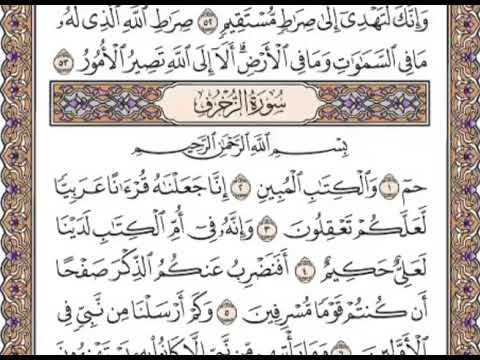 وَإِنَّكَ لَتَهْدِىٓ إِلَىٰ صِرَٰطٍ مُّسْتَقِيمٍ ٥٢ صِرَٰطِ ٱللَّهِ ٱلَّذِى لَهُۥ
مَا فِى ٱلسَّمَٰوَٰتِ وَمَا فِى ٱلْأَرْضِ ۗ أَلَآ إِلَى ٱللَّهِ تَصِيرُ ٱلْأُمُورُ ٥٣
سُورَةُ الزُّخْرُفِ
بِسْمِ ٱللَّهِ ٱلرَّحْمَٰنِ ٱلرَّحِيمِ
حمٓ ١ وَٱلْكِتَٰبِ ٱلْمُبِينِ ٢ إِنَّا جَعَلْنَٰهُ قُرْءَٰنًا عَرَبِيًّا
لَّعَلَّكُمْ تَعْقِلُونَ ٣ وَإِنَّهُۥ فِىٓ أُمِّ ٱلْكِتَٰبِ لَدَيْنَا
لَعَلِىٌّ حَكِيمٌ ٤ أَفَنَضْرِبُ عَنكُمُ ٱلذِّكْرَ صَفْحًا
أَن كُنتُمْ قَوْمًا مُّسْرِفِينَ ٥ وَكَمْ أَرْسَلْنَا مِن نَّبِىٍّ فِى
ٱلْأَوَّلِينَ